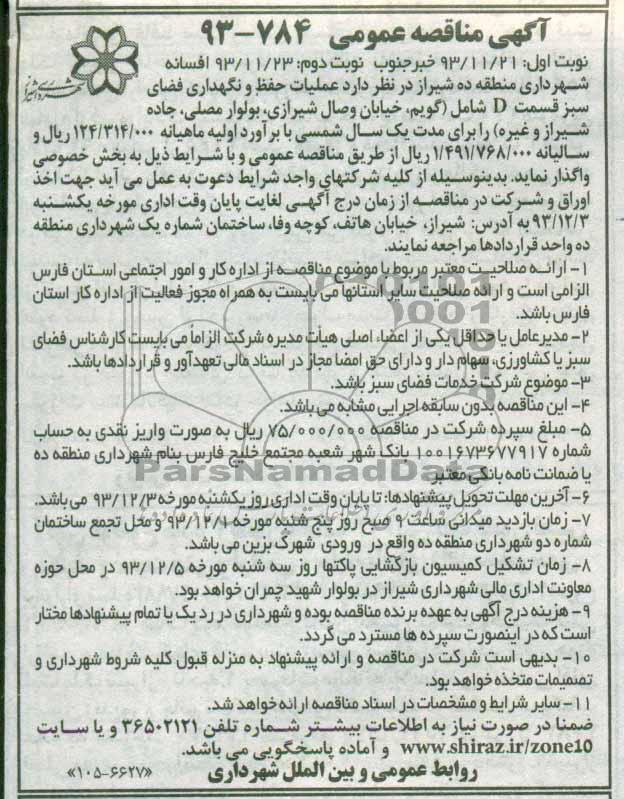 آگهی مناقصه عمومی ۷۸۴-۹۳
نوبت اول: ۹۳/۱۱/۲۱ خبرجنوب نوبت دوم: ۹۳/۱۱/۲۳ افسانه
شهرداری منطقه ده شیراز در نظر دارد عملیات حفظ و نگهداری فضای
سبز قسمت D شامل (گویم، خیابان وصال شیرازی، بولوار مصلی، جاده
شیراز و غیره) را برای مدت یک سال شمسی با برآورد اولیه ماهیانه ۱۲۴/۳۱۴/۰۰۰ ریال و
سالیانه ۱/۴۹۱/۷۶۸/۰۰۰ ریال از طریق مناقصه عمومی و با شرایط ذیل به بخش خصوصی
واگذار نماید. بدینوسیله از کلیه شرکتهای واجد شرایط دعوت به عمل می آید جهت اخذ
اوراق و شرکت در مناقصه از زمان درج آگهی لغایت پایان وقت اداری مورخه یکشنبه
۹۳/۱۲/۳ به آدرس: شیراز، خیابان هاتف، کوچه وفا، ساختمان شماره یک شهرداری منطقه
ده واحد قراردادها مراجعه نمایند.
۱- ارائه صلاحیت معتبر مربوط با موضوع مناقصه از اداره کار و امور اجتماعی استان فارس
الزامی است و ارائه صلاحیت سایر استانها می بایست به همراه مجوز فعالیت از اداره کار استان
فارس باشد.
۲- مدیرعامل یا حداقل یکی از اعضاء اصلی هیأت مدیره شرکت الزاماً می بایست کارشناس فضای
سبز یا کشاورزی، سهام دار و دارای حق امضا مجاز در اسناد مالی تعهدآور و قراردادها باشد.
۳- موضوع شرکت خدمات فضای سبز باشد.
۴- این مناقصه بدون سابقه اجرایی مشابه می باشد.
۵- مبلغ سپرده شرکت در مناقصه ۷۵/۰۰۰/۰۰۰ ریال به صورت واریز نقدی به حساب
شماره ۱۰۰۱۶۷۳۶۷۷۹۱۷ بانک شهر شعبه مجتمع خلیج فارس بنام شهرداری منطقه ده
یا ضمانت نامه بانکی معتبر
ParsNamadData
۶- آخرین مهلت تحویل پیشنهادها: تا پایان وقت اداری روز یکشنبه مورخه ۹۳/۱۲/۳ می باشد.
۷- زمان بازدید میدانی ساعت ۹ صبح روز پنج شنبه مورخه ۹۳/۱۲/۱ و محل تجمع ساختمان
شماره دو شهرداری منطقه ده واقع در ورودی شهرک بزین می باشد.
۸- زمان تشکیل کمیسیون بازگشایی پاکتها روز سه شنبه مورخه ۹۳/۱۲/۵ در محل حوزه
معاونت اداری مالی شهرداری شیراز در بولوار شهید چمران خواهد بود.
۹- هزینه درج آگهی به عهده برنده مناقصه بوده و شهرداری در رد یک یا تمام پیشنهادها مختار
است که در اینصورت سپرده ها مسترد می گردد.
۱۰- بدیهی است شرکت در مناقصه و ارائه پیشنهاد به منزله قبول کلیه شروط شهرداری و
تصمیمات متخذه خواهد بود.
۱۱- سایر شرایط و مشخصات در اسناد مناقصه ارائه خواهد شد.
ضمنا در صورت نیاز به اطلاعات بیشتر شماره تلفن ۳۶۵۰۲۱۲۱ و یا سایت
www.shiraz.ir/zone10 و آماده پاسخگویی می باشد.
روابط عمومی و بین الملل شهرداری
«۱۰۵-۶۶۲۷»